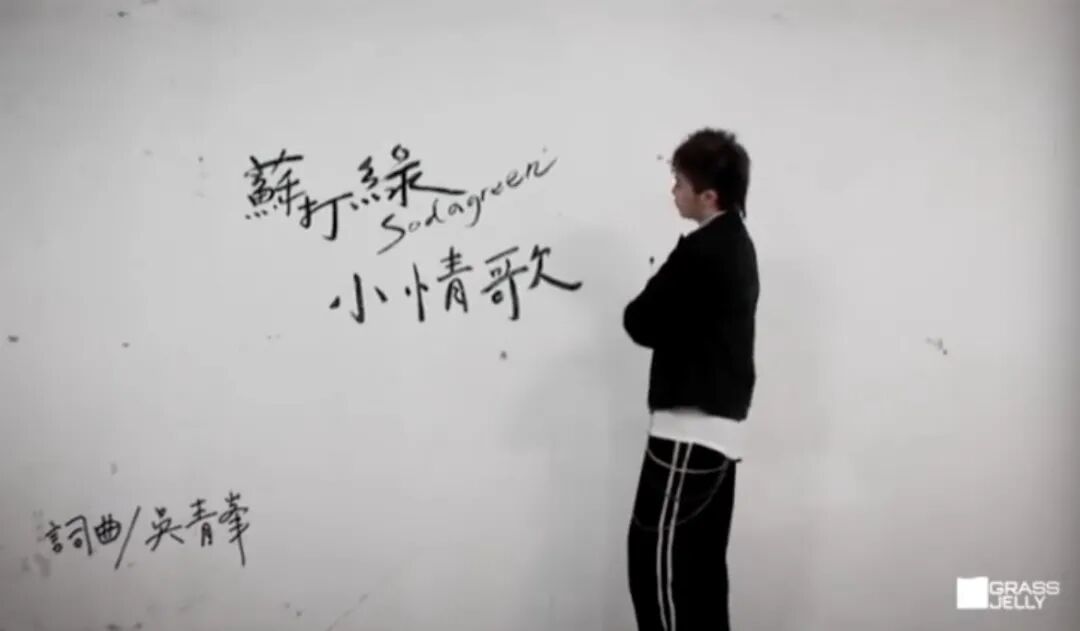 蘇打綠
Sodagreen
小情歌
詞曲/吳青峯
GRASS
JELLY